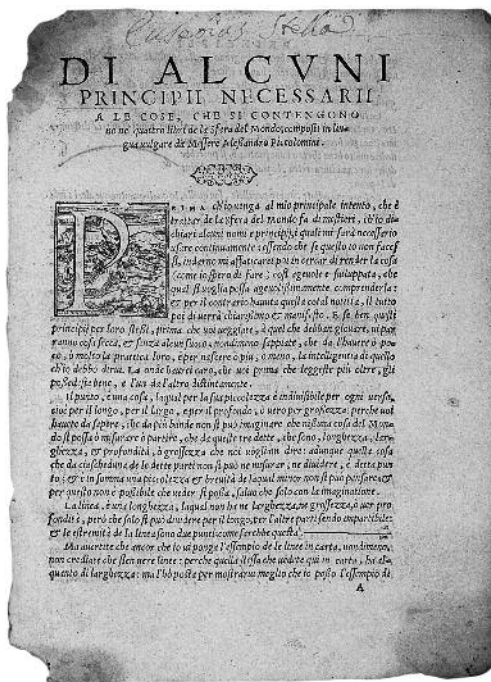 DI ALCVNI
PRINCIPII NECESSARII
A LE COSE, CHE SI CONTENGONO
no ne' quattro libri de la Sfera del Mondo, composti in lin-
gua vulgare da Messere Alessandro Piccolomini.
PRIMA ch'io venga al mio principale intento, che è
trattar de la Sfera del Mondo fa di mestieri, ch'io di-
chiari alcuni nomi e principij; i quali mi sarà necessario
usare continuamente: essendo che se questo io non faces
si, indarno mi affaticarei poi in cercar di render la cosa
(come io spero di fare) così ageuole e suiluppata, che
qual si voglia possa ageuolissimamente comprenderla:
& per il contrario hauuta quella total notitia, il tutto
poi di verrà chiarissimo & manifesto. E se ben questi
principij per loro stessi, prima che voi ueggiate, à quel che debban giouare, ui par
ranno cosa secca, & senza alcun suono, nondimeno sappiate, che da l'hauere ò po-
co, ò molto la prattica loro, è per nascere ò piu, ò meno, la intelligentia di quello
ch'io debbo dirui. La onde haurei caro, che uoi prima che leggeste più oltre, gli
possediste bene, e l'un da l'altro distintamente.
Il punto, è una cosa, laqual per la sua piccolezza è indiuisibile per ogni uerso,
cioè per il longo, per il largo, e per il profondo, ò uero per grossezza: perche uoi
hauete da sapere, che da più bande non si può imaginare che nissuna cosa del Mon-
do si possa ò misurare ò partire, che da queste tre dette, che sono, longhezza, lar-
ghezza, & profondità, ò grossezza che noi uogliam dire: adunque quella cosa
che da ciascheduna de le dette parti non si può ne misurar, ne diuidere, è detta pun
to; & è in somma una piccolezza e breuità de laqual minor non si può pensare, &
per questo non è possibile che ueder si possa, saluo che solo con la imaginatione.
La linea, è una longhezza, laqual non ha ne larghezza, ne grossezza, ò uer pro-
fondità, però che solo si può diuidere per il longo, per l'altre parti sendo impartibile:
& le estremità de la linea sono due punti come sarebbe questa.
Ma auertite che ancor che io ui ponga l'essempio de le linee in carta, nondimeno,
non crediate che sien uere linee: perche quella istessa che uedete qui in carta, ha al-
quanto di larghezza: ma l'hò posta per mostrarui meglio che io posso l'essempio di
A